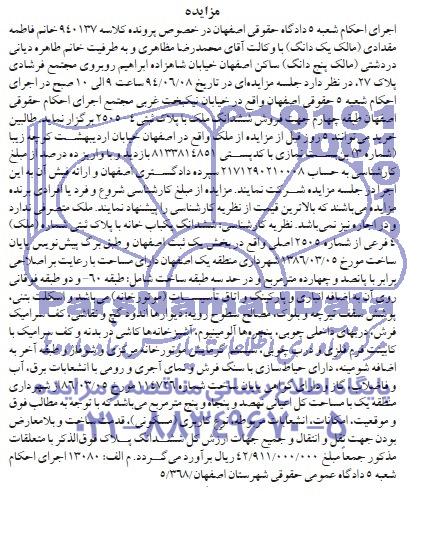 مزایده
اجرای احکام شعبه ۵ دادگاه حقوقی اصفهان در خصوص پرونده کلاسه ۹۴۰۱۳۷ خانم فاطمه
مقدادی (مالک یک دانگ) با وکالت آقای محمدرضا مظاهری و به طرفیت خانم طاهره دیانی
دردشتی (مالک پنج دانگ) ساکن اصفهان خیابان شاهزاده ابراهیم روبروی مجتمع فرشادی
پلاک ۲۷، در نظر دارد جلسه مزایده‌ای در تاریخ ۹۴/۰۶/۰۸ ساعت ۹ الی ۱۰ صبح در اجرای
احکام شعبه ۵ حقوقی اصفهان واقع در خیابان نیکبخت غربی مجتمع اجرای احکام حقوقی
اصفهان طبقه چهارم جهت فروش ششدانگ ملک با پلاک ثبتی ۴-۲۵۰۵ برگزار نماید. طالبین
خرید می‌توانند ۵ روز قبل از مزایده از ملک واقع در اصفهان خیابان اردیبهشت کوچه زیبا
(شماره ۳) بن‌بست نمازی با کدپستی ۸۱۳۳۸۱۴۸۵۱ بازدید و با واریز ده درصد از مبلغ
کارشناسی به حساب ۲۱۷۱۲۹۰۲۱۰۰۰۸ سپرده دادگستری اصفهان و ارائه فیش آن به این
اجرا در جلسه مزایده شرکت نمایند. مزایده از مبلغ کارشناسی شروع و فرد یا افرادی برنده
مزایده می‌باشند که بالاترین قیمت از نظریه کارشناسی را پیشنهاد نمایند. ملک متصرفی ندارد
و در اجاره نیز نمی‌باشد. نظریه کارشناسی: ششدانگ یکباب خانه با پلاک ثبتی شماره (ملک)
۴ فرعی از شماره ۲۵۰۵ اصلی واقع در بخش یک ثبت اصفهان و طبق برگ پیش‌نویس پایان
ساخت مورخ ۱۳۸۶/۰۳/۰۵ شهرداری منطقه یک اصفهان دارای مساحت با رعایت بر اصلاحی
برابر با پانصد و چهارده مترمربع و در حد سه طبقه ساخت شامل: طبقه ۶۰- و دو طبقه فوقانی
روی آن به اضافه انباری و پارکینگ و اتاق تأسیسات (موتورخانه) می‌باشد و اسکلت بتنی،
پوشش سقف تیرچه و بلوک، مصالح سطوح رویه: دیوارها اندود گچ و نقاشی، کف سرامیک
فرش، درب‌های داخلی چوبی، پنجره‌ها آلومینیوم، آشپزخانه‌ها کاشی در بدنه و کف سرامیک با
کابینت فرم فلزی و درب چوبی، سیستم گرمایش موتورخانه مرکزی و شوفاژ و طبقه آخر به
اضافه شومینه، دارای حیاط‌سازی با سنگ فرش و نمای آجری و رومی با انشعابات برق، آب
و فاضلاب، گاز و دارای گواهی پایان ساخت شماره ۱۴۷۲۶ مورخ ۱۳۸۶/۰۳/۰۵ شهرداری
منطقه یک با مساحت کل اعیانی نهصد و پنجاه و پنج مترمربع می‌باشد که با توجه به مطالب فوق
و موقعیت، امکانات، انشعابات مربوطه، نوع کاربری (مسکونی)، قدمت ساخت و بلامعارض
بودن جهت نقل و انتقال و جمیع جهات ارزش کل ششدانگ پلاک فوق‌الذکر با متعلقات
مذکور جمعاً مبلغ ۴۲/۹۱۱/۰۰۰/۰۰۰ ریال برآورد می‌گردد. م الف: ۱۳۰۸۰ اجرای احکام
شعبه ۵ دادگاه عمومی حقوقی شهرستان اصفهان/۵/۳۶۸
۰۲۱-۸۸۳۴۹۶۷۰-۵